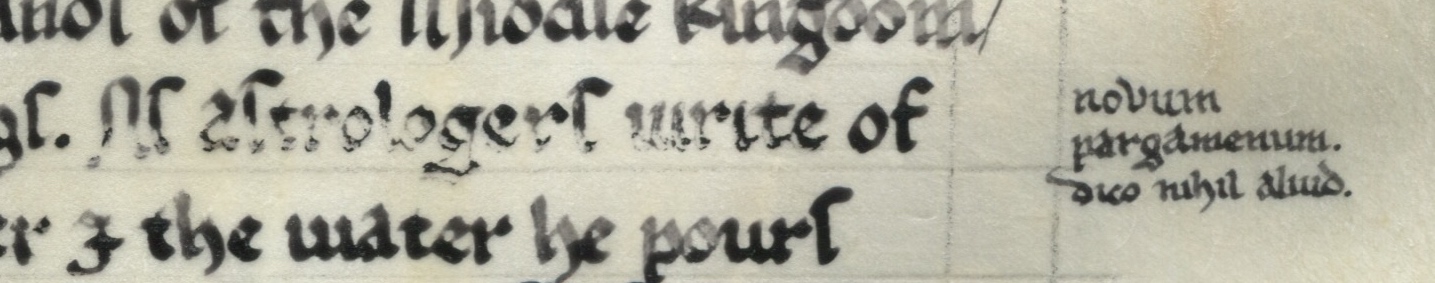 of the Middle Kingdom/
gs. As astrologers write of
er & the water he pours
novum
pargamenum.
dico nihil aliud.